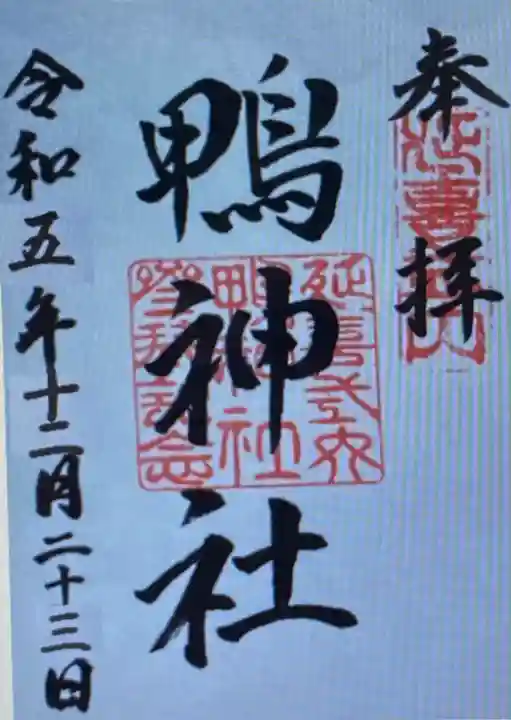 奉拝
延喜式内
鴨神社
延喜式内
鴨神社
参拝記念
令和五年十二月二十三日